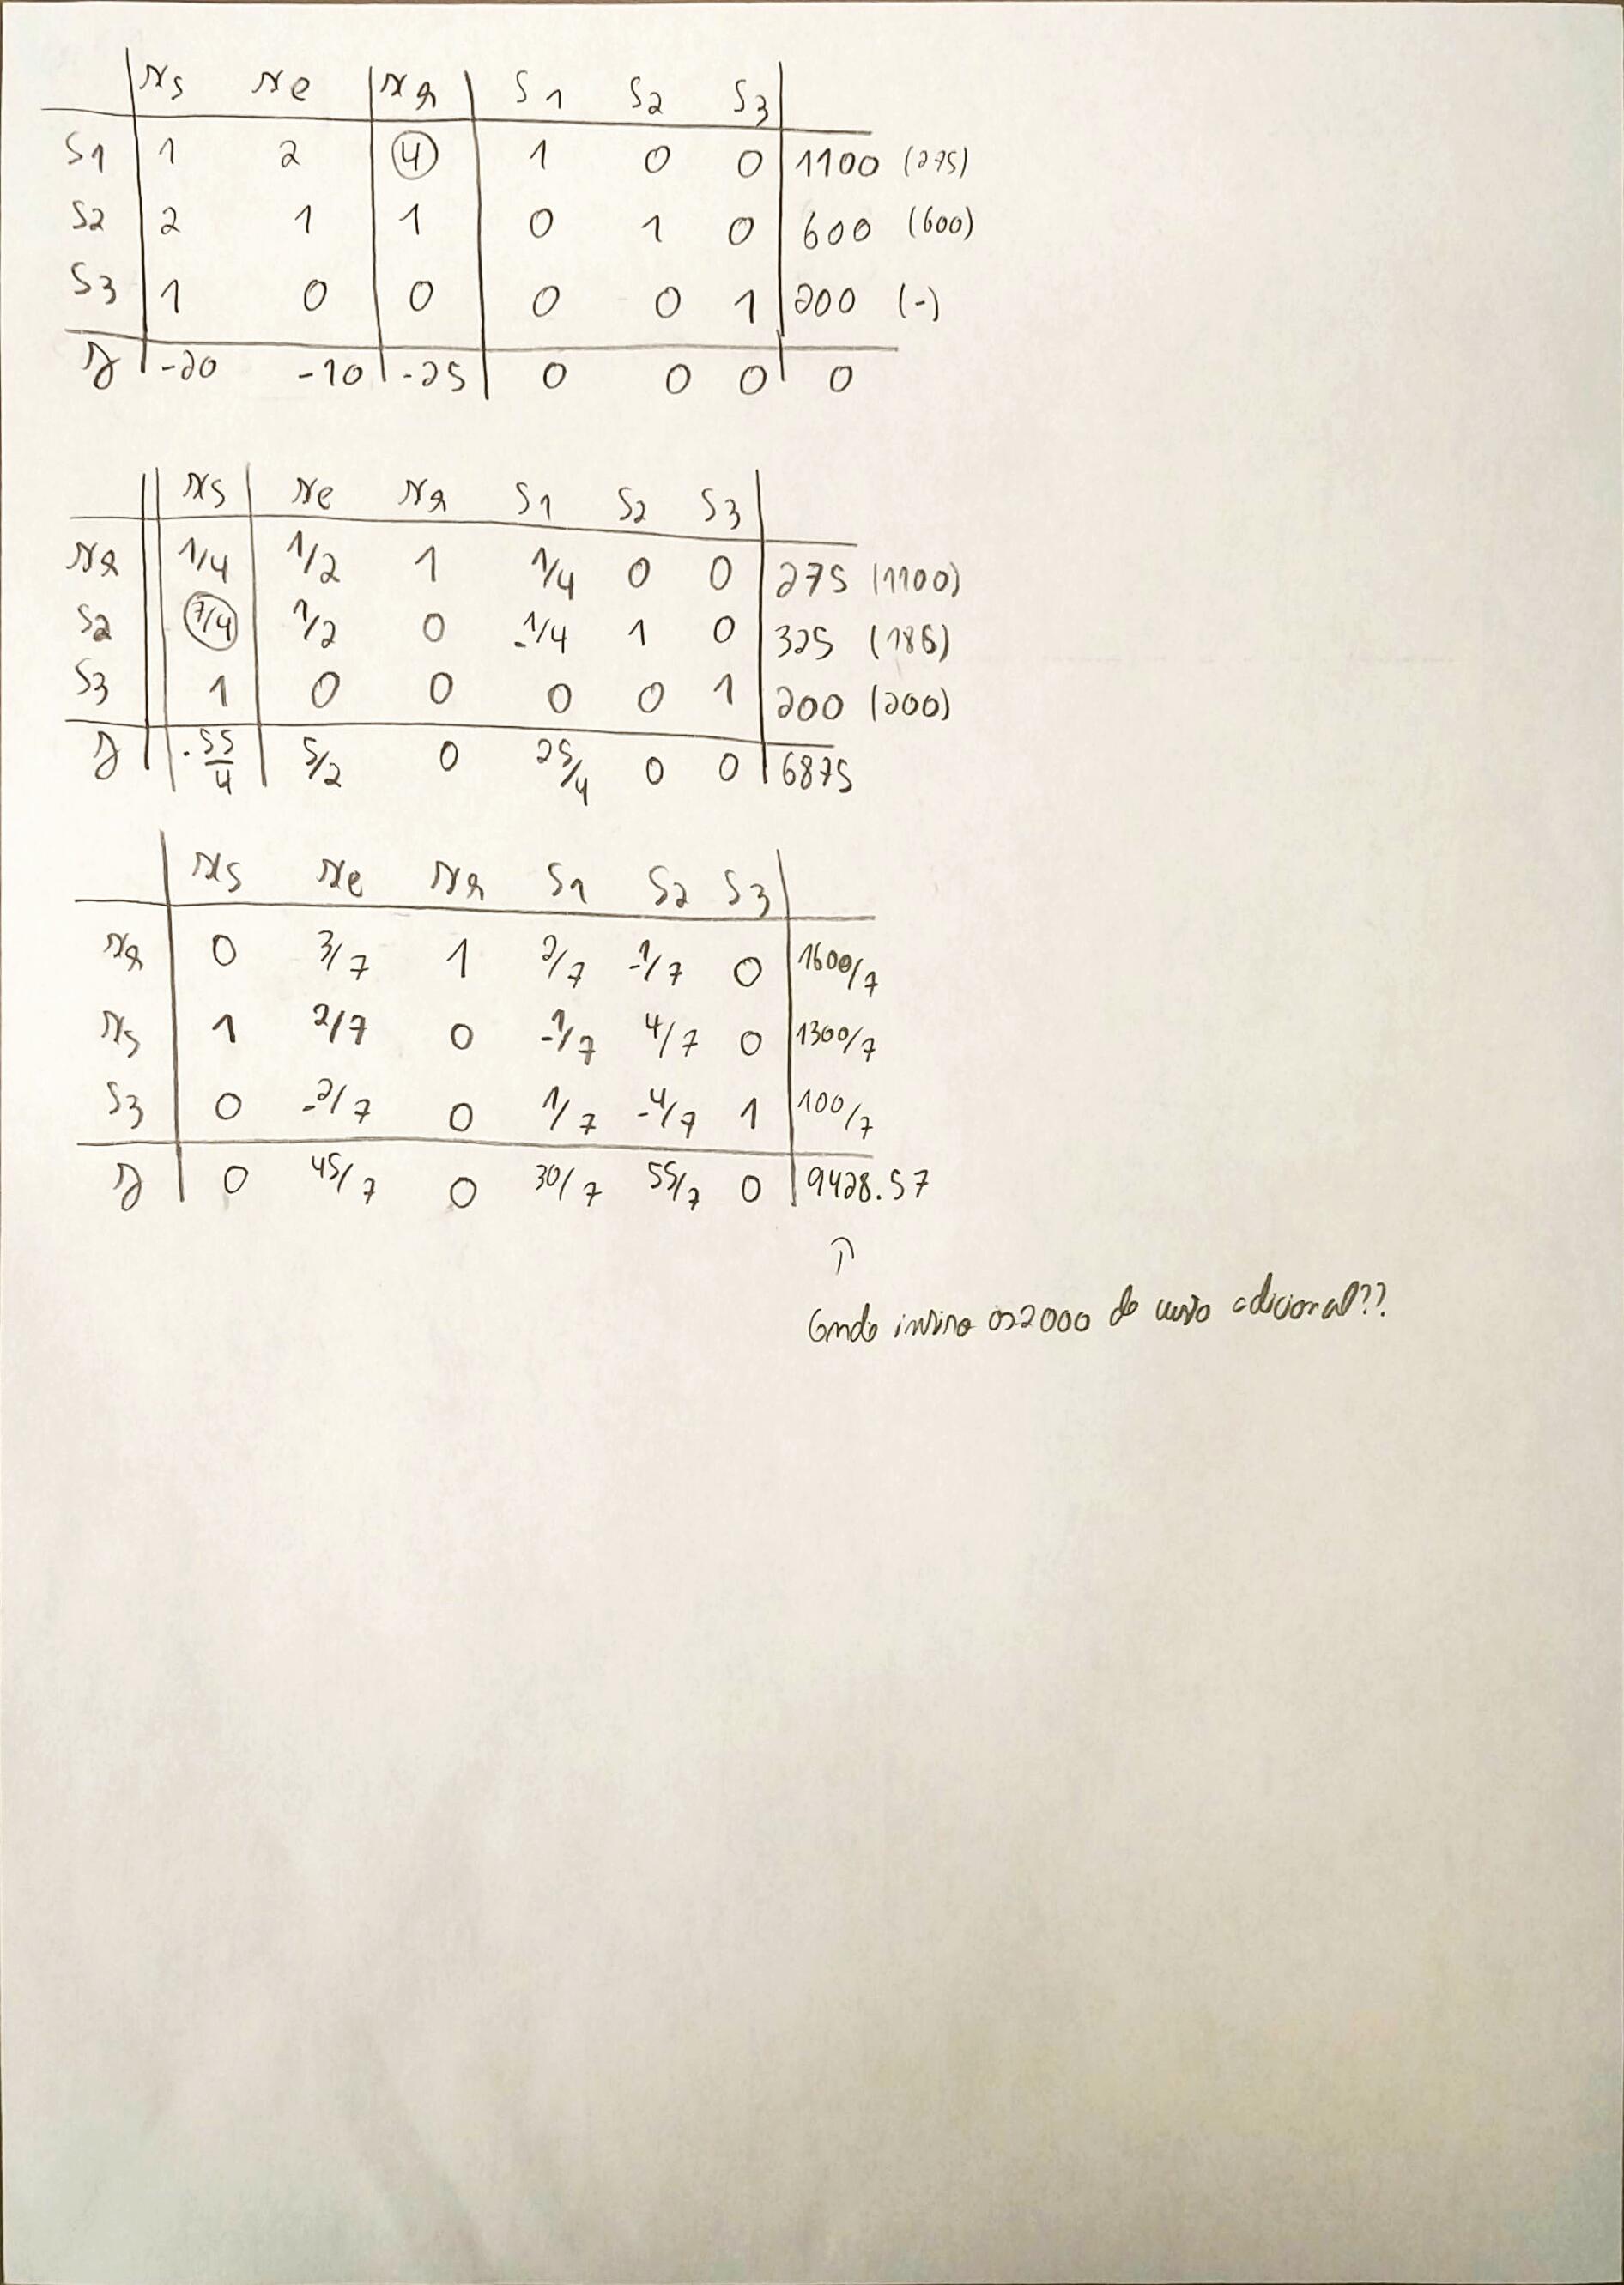 xs xe xr s1 s2 s3
s1 1 2 4 1 0 0 1100 (275)
s2 2 1 1 0 1 0 600 (600)
s3 1 0 0 0 0 1 200 (-)
z -20 -10 -25 0 0 0 0
xs xe xr s1 s2 s3
xr 1/4 1/2 1 1/4 0 0 275 (1100)
s2 7/4 1/2 0 -1/4 1 0 325 (186)
s3 1 0 0 0 0 1 200 (200)
z -55/4 5/2 0 25/4 0 0 6875
xs xe xr s1 s2 s3
xr 0 3/7 1 2/7 -1/7 0 1600/7
xs 1 2/7 0 -1/7 4/7 0 1300/7
s3 0 -2/7 0 1/7 -4/7 1 100/7
z 0 45/7 0 30/7 55/7 0 9428.57
↑
Onde insiro os 2000 do custo adicional??